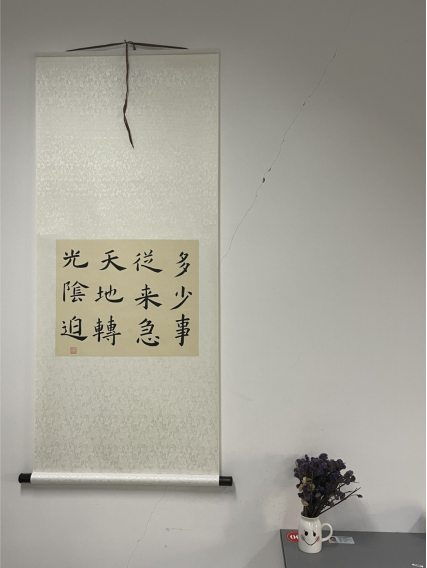 多少事
從来急
天地轉
光陰迫